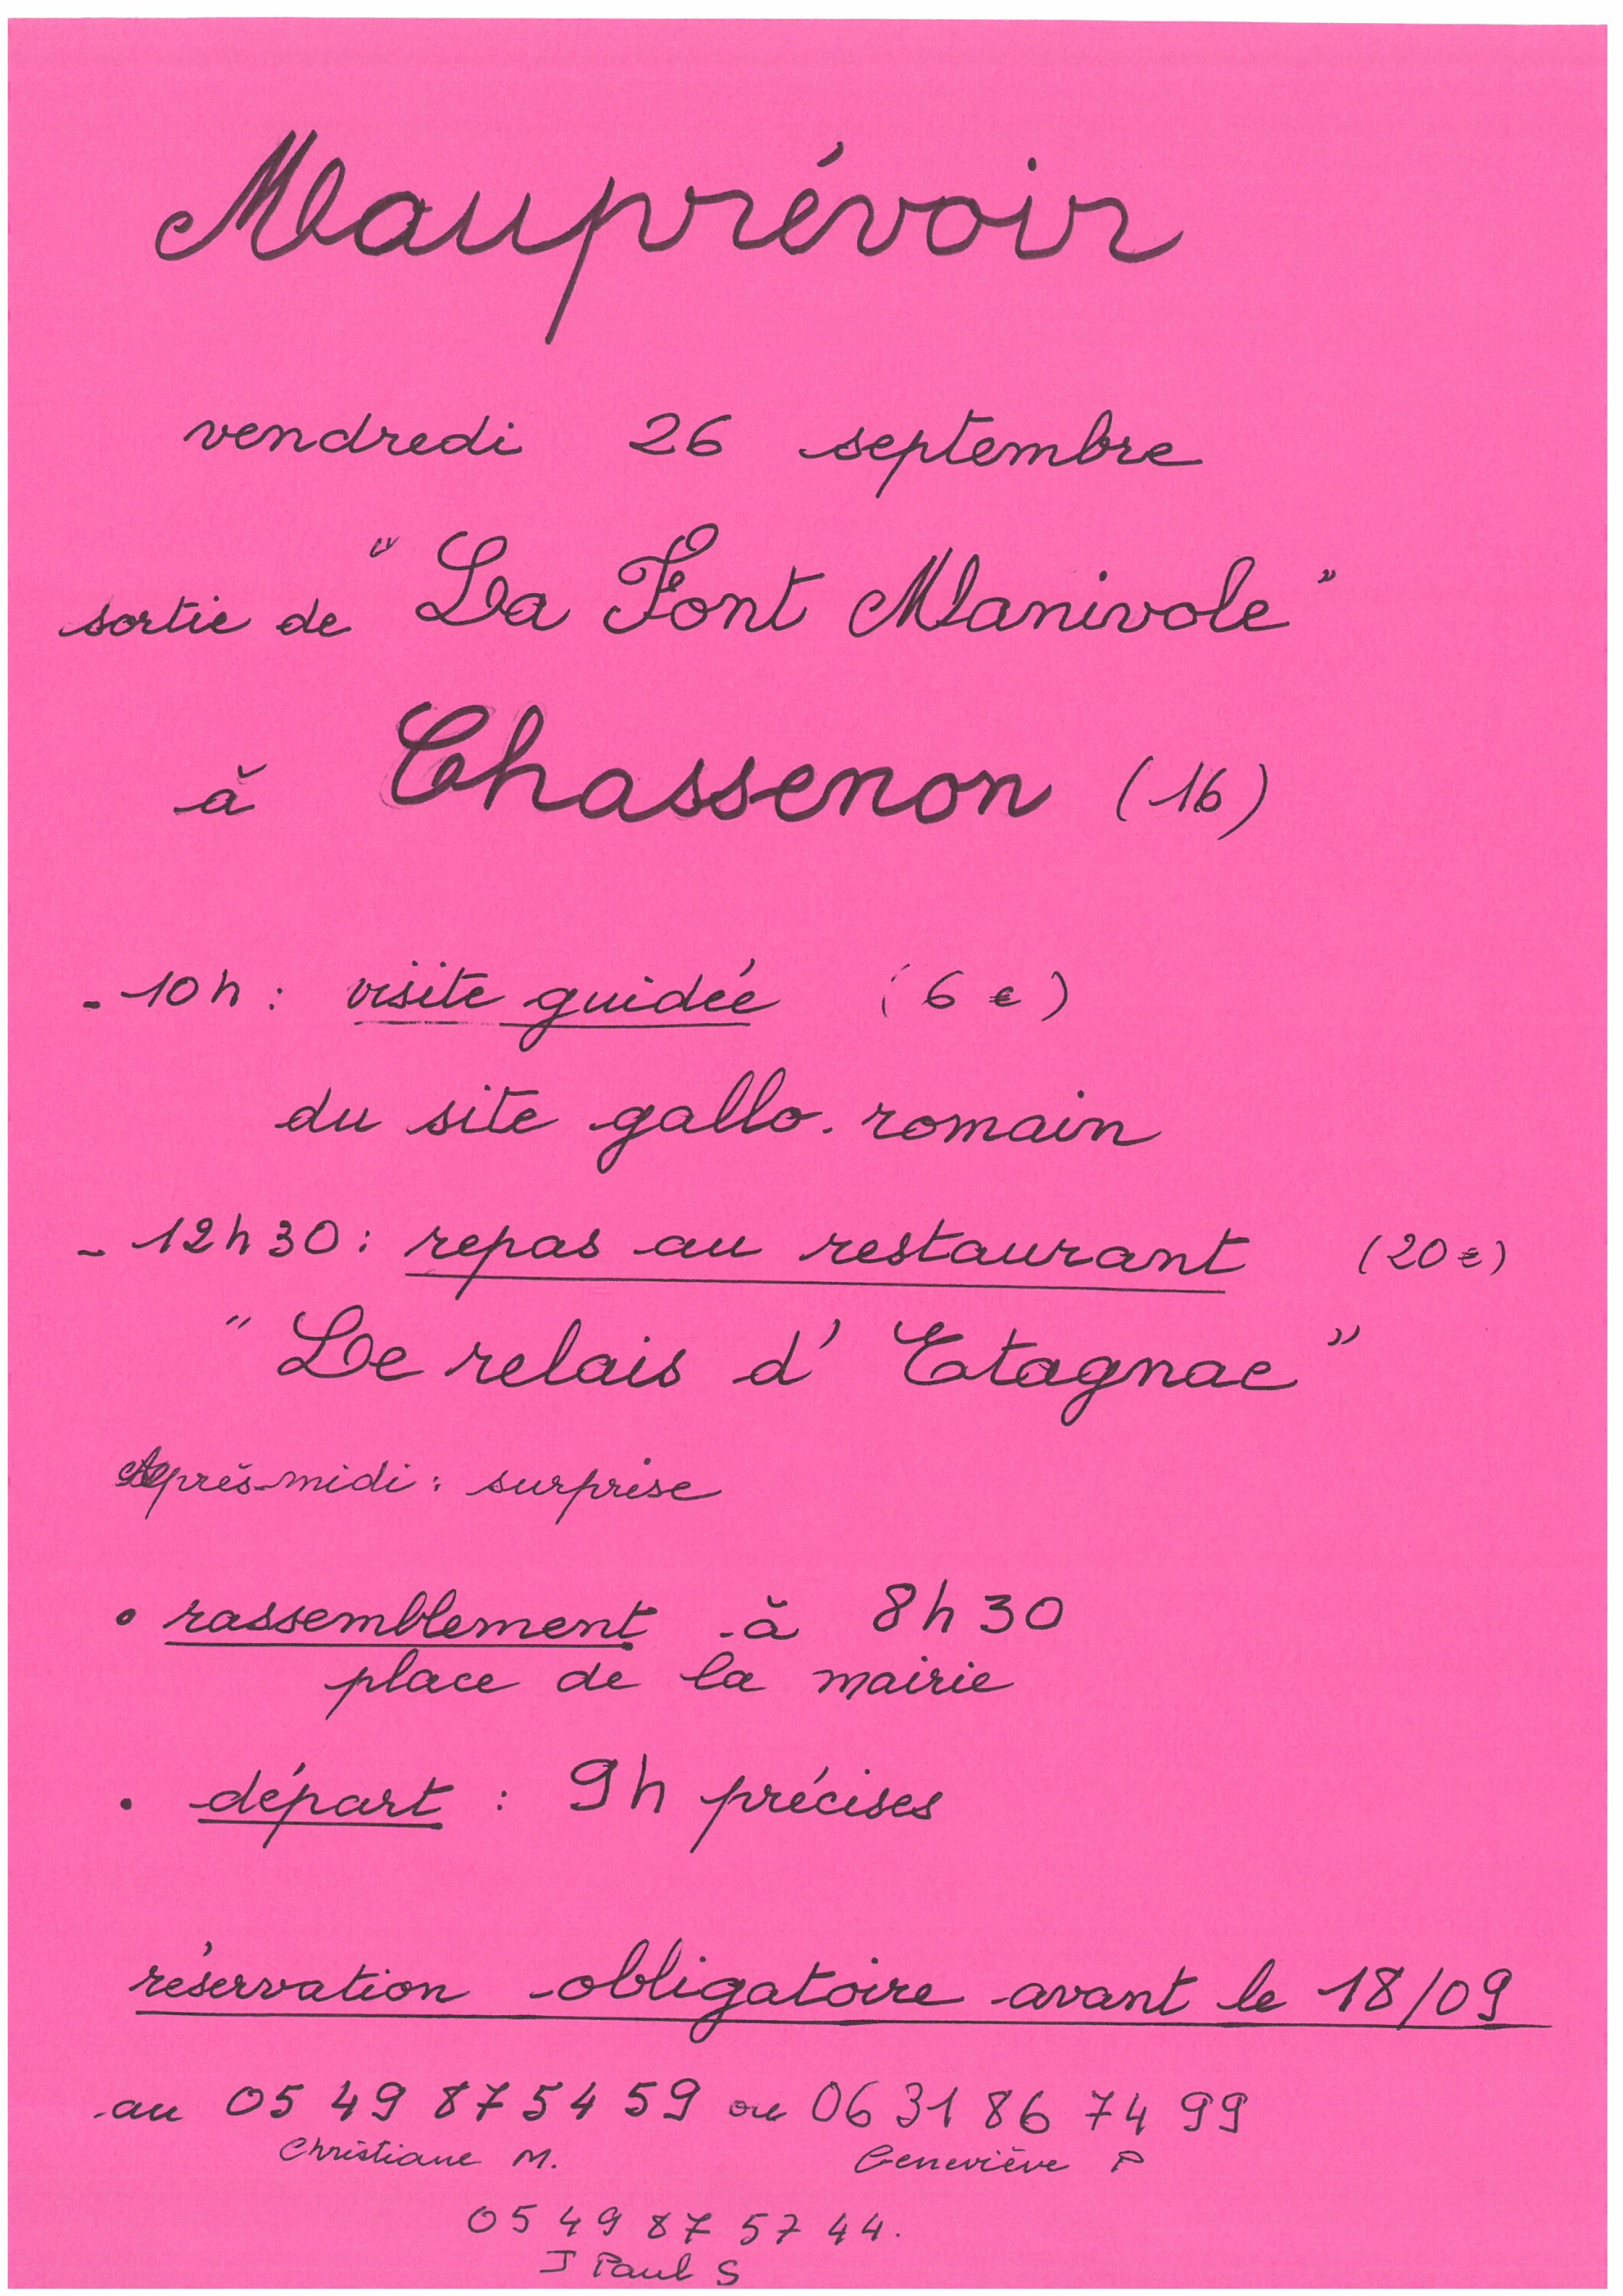 Mauprévoir
vendredi 26 septembre
sortie de "La Font Manivole"
à Chassenon (16)
- 10h : visite guidée (6 €)
du site gallo-romain
- 12h30 : repas au restaurant (20 €)
"Le relais d'Etagnac"
Après-midi : surprise
• rassemblement à 8h30
place de la mairie
• départ : 9h précises
réservation obligatoire avant le 18/09
au 05 49 87 54 59 ou 06 31 86 74 99
Christiane M. Geneviève P
05 49 87 57 44.
J Paul S